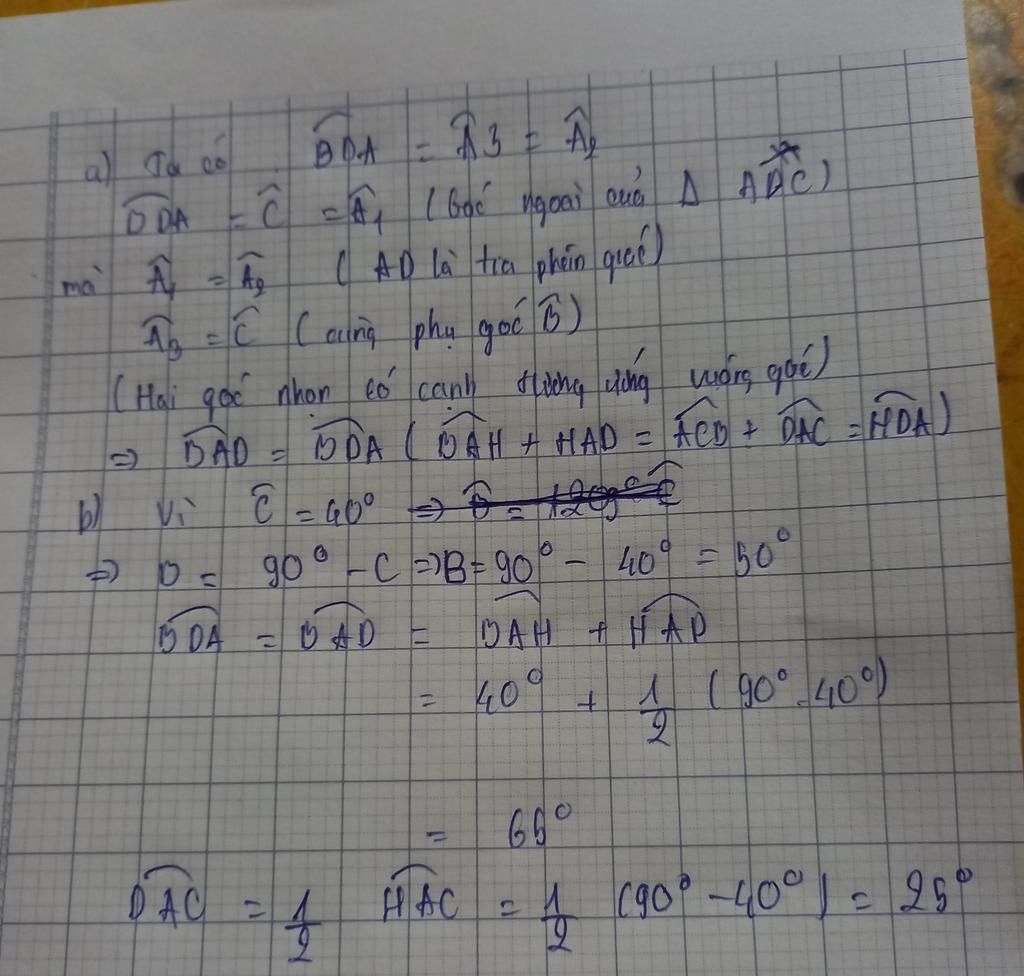 a) Ta có BDA = A3 = A2
BDA = C = A1 (Góc ngoài của Δ ADC)
mà A1 = A2 (AD là tia phân giác)
A3 = C (cùng phụ góc B)
(Hai góc nhọn có cạnh tương ứng vuông góc)
=> BAD = BDA (BAH + HAD = ACB + DAC = HDA)
b) Vì C = 40°
=> B = 90° - C => B = 90° - 40° = 50°
BDA = BAD = BAH + HAD
= 40° + 1/2 (90° - 40°)
= 65°
DAC = 1/2 HAC = 1/2 (90° - 40°) = 25°